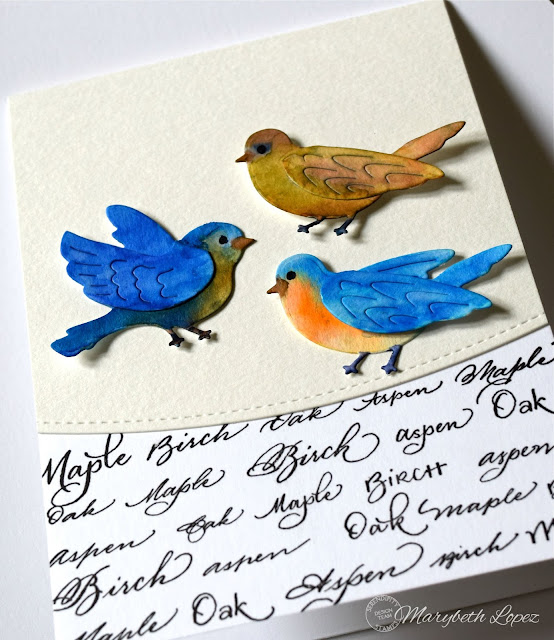 Maple Birch Oak Aspen Maple
Oak Maple Birch aspen Oak
aspen Oak Maple Birch aspen
Birch aspen Oak maple
Maple Oak Aspen Birch
SERENDIPITY STAMPS
DESIGN TEAM
Marybeth Lopez